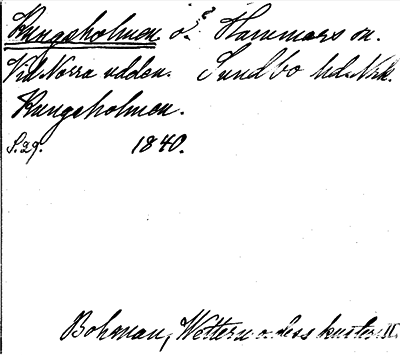 Kungsholmen ö? Hammars sn.
Vid Norra udden. Sundbo hd. Nrk.
Kungsholmen.
S. 29. 1840.
Bohman, Wettern o. dess kuster II